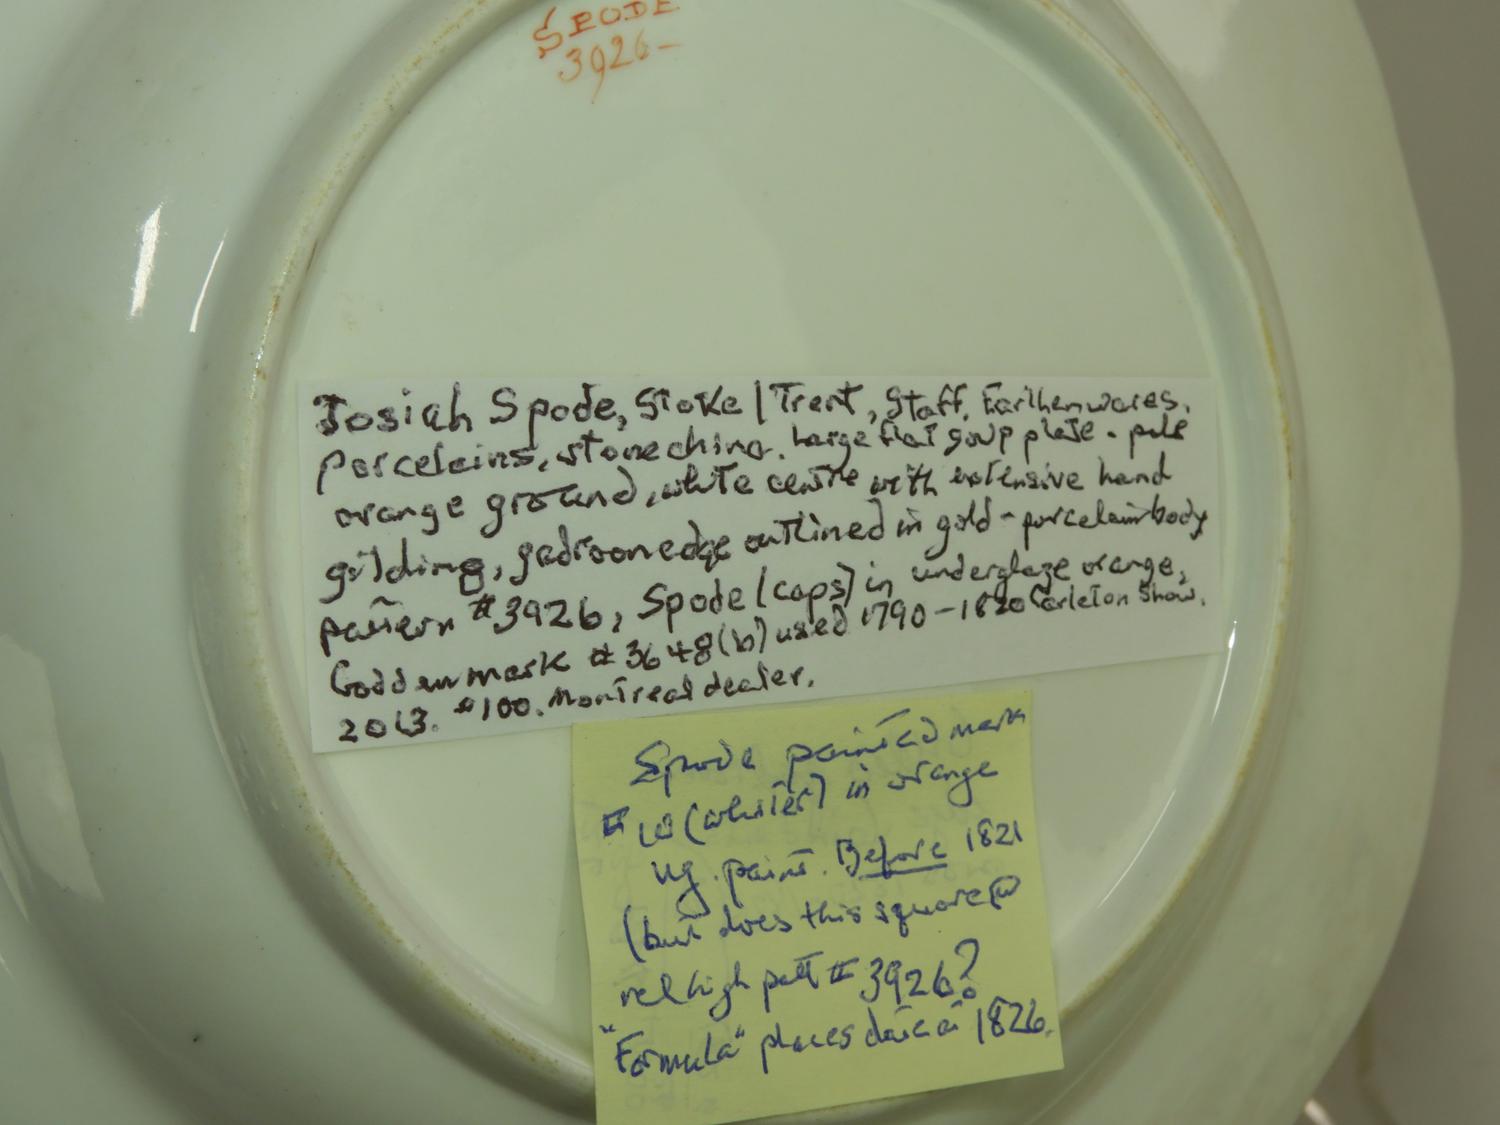 SPODE
3926-
Josiah Spode, Stoke / Trent, Staff. Earthenwares,
porcelains, stone china. Large flat soup plate - pale
orange ground, white centre with extensive hand
gilding, gadroon edge outlined in gold - porcelain body
pattern #3926, Spode (caps) in underglaze orange,
Godden mark #3648(b) used 1790-1820 Carleton Show.
2013. $100. Montreal dealer.
Spode painted mark
# 10 (whiter) in orange
ug. paint. Before 1821
(but does this square @
rel high patt # 3926?
"Formula" places date at 1826.